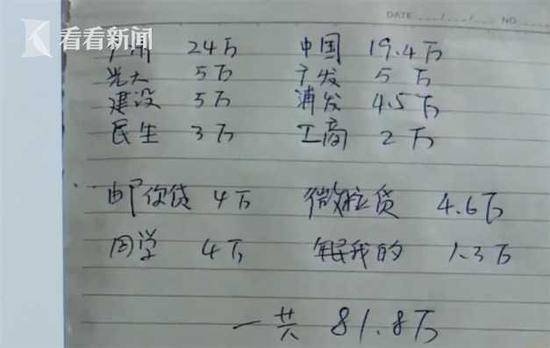 DATE / / NO.
看看新闻
24万 中国 19.4万
光大 5万 广发 5万
建设 5万 浦发 4.5万
民生 3万 工商 2万
邮你贷 4万 微粒贷 4.6万
同学 4万 我的 1.3万
一共 81.8万